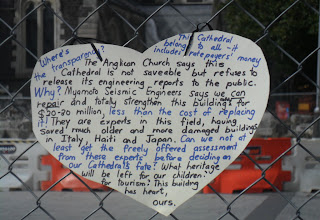 Where's the transparency?
This Cathedral
belongs to all - it
includes ratepayers' money
The Anglican Church says this
Cathedral is not saveable but refuses to
release its engineering reports to the public.
Why? Miyamoto Seismic Engineers says we can
repair and totally strengthen this building for
$20-30 million, less than the cost of replacing
it! They are experts in this field, having
saved much older and more damaged buildings
in Italy, Haiti and Japan. Can we not at
least get the freely offered assessment
from these experts before deciding on
our Cathedral's fate? What heritage
will be left for our children?
for tourism? This building
has heart,
ours.